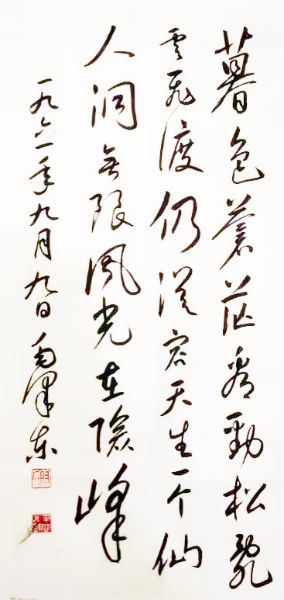 暮色蒼茫看勁松亂
雲飛渡仍從容天生一个仙
人洞無限風光在險峰
一九六一年九月九日 毛澤东